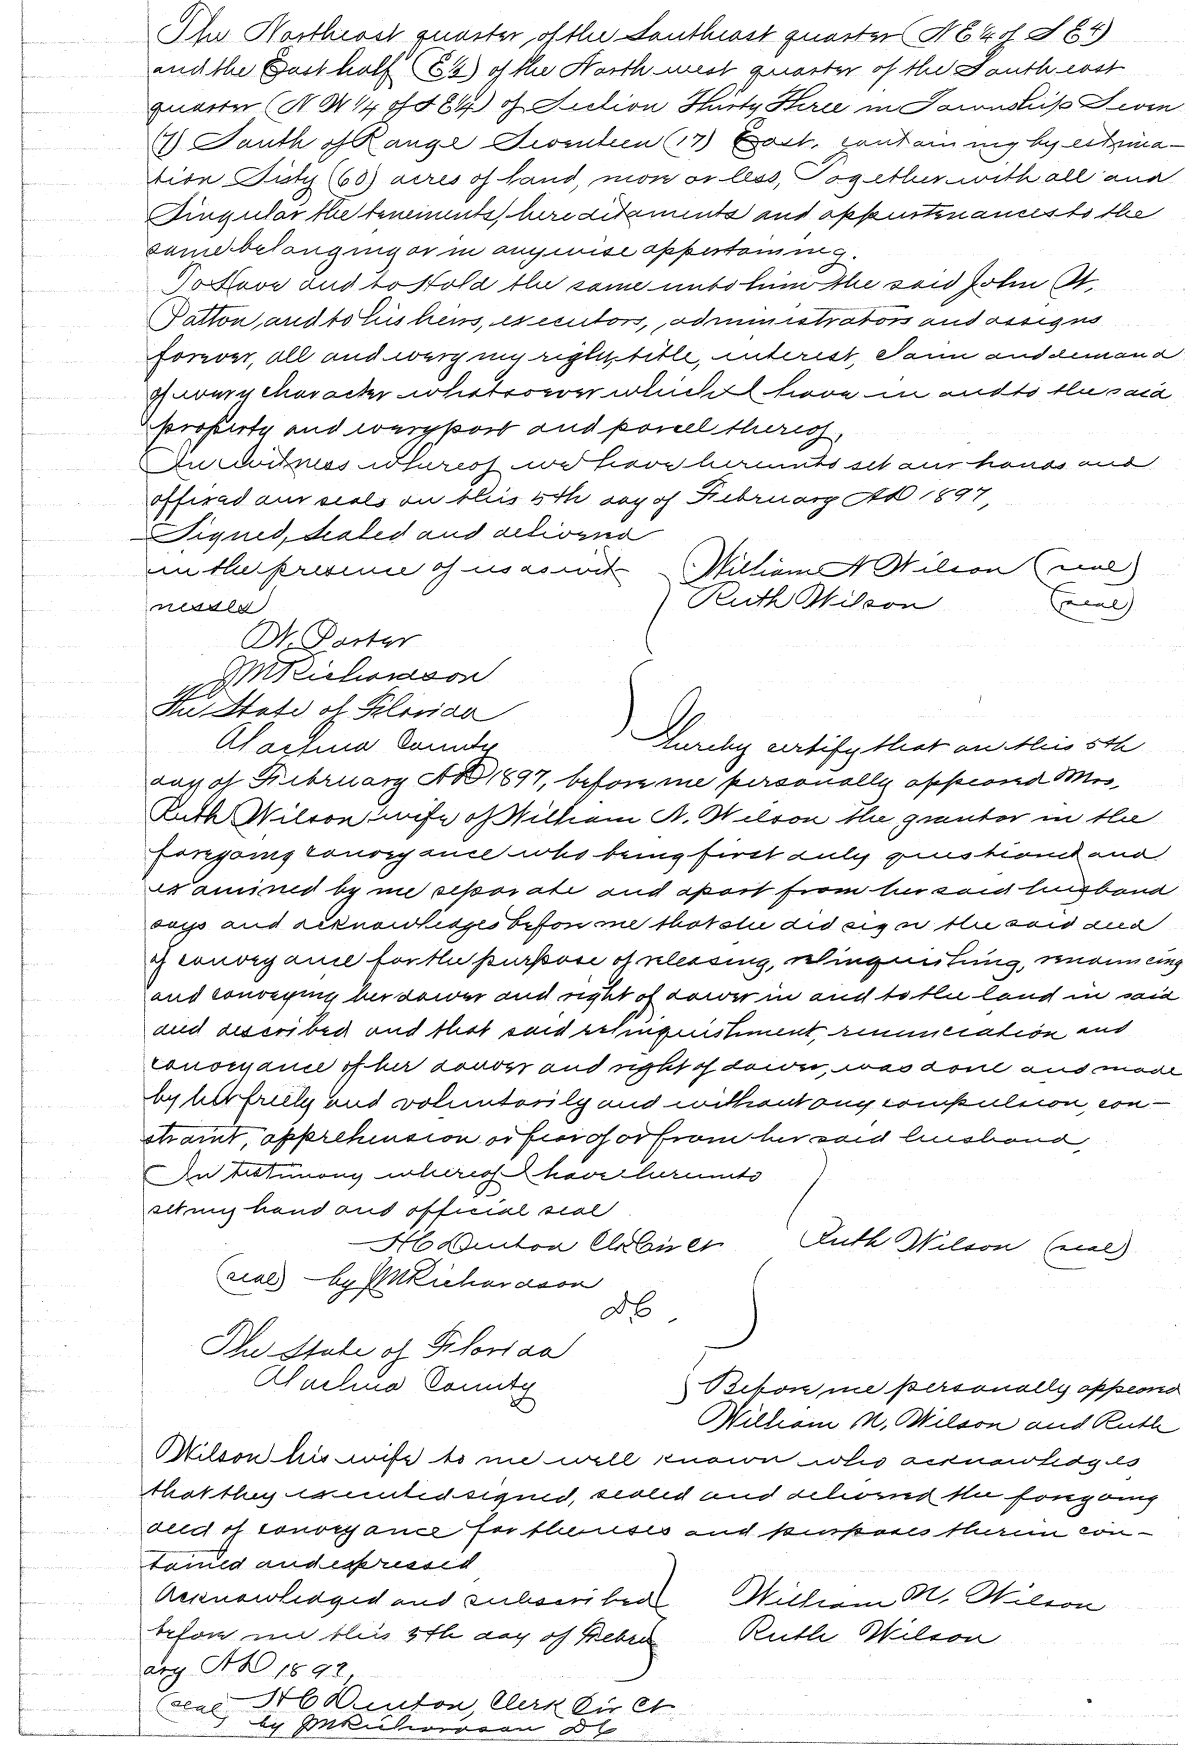 The Northeast quarter of the Southeast quarter (NE¼ of SE¼)
and the East half (E½) of the North west quarter of the South east
quarter (N W ¼ of SE¼) of Section Thirty Three in Township Seven
(7) South of Range Seventeen (17) East, containing by estima-
tion Sixty (60) acres of land, more or less, Together with all and
Singular the tenements, hereditaments and appurtenances to the
same belonging or in anywise appertaining.
To Have and to Hold the same unto him the said John W.
Patton, and to his heirs, executors, administrators and assigns
forever, all and every my right, title, interest, claim and demand
of every character whatsoever which I have in and to the said
property and every part and parcel thereof,
In witness whereof we have hereunto set our hands and
affixed our seals on this 5th day of February AD 1897,
Signed, Sealed and delivered
in the presence of us as wit-
nesses
William N Wilson (seal)
Ruth Wilson (seal)
W. Porter
JM Richardson
The State of Florida
Alachua County
I hereby certify that on this 5th
day of February AD 1897, before me personally appeared Mrs,
Ruth Wilson wife of William N. Wilson the grantor in the
foregoing conveyance who being first duly questioned and
examined by me separate and apart from her said husband
says and acknowledges before me that she did sign the said deed
of conveyance for the purpose of releasing, relinquishing, renouncing
and conveying her dower and right of dower in and to the land in said
deed described and that said relinquishment, renunciation and
conveyance of her dower and right of dower, was done and made
by her freely and voluntarily and without any compulsion, con-
straint, apprehension or fear of or from her said husband,
In testimony whereof I have hereunto
set my hand and official seal
HC Denton Clk Cir Ct
Ruth Wilson (seal)
(seal) by JM Richardson
DC.
The State of Florida
Alachua County
Before me personally appeared
William N. Wilson and Ruth
Wilson his wife to me well known who acknowledges
that they executed signed, sealed and delivered the foregoing
deed of conveyance for the uses and purposes therein con-
tained and expressed
Acknowledged and subscribed
before me this 5th day of Febru
ary AD 1897,
William N. Wilson
Ruth Wilson
(seal) HC Denton, Clerk Cir Ct
by JM Richardson DC